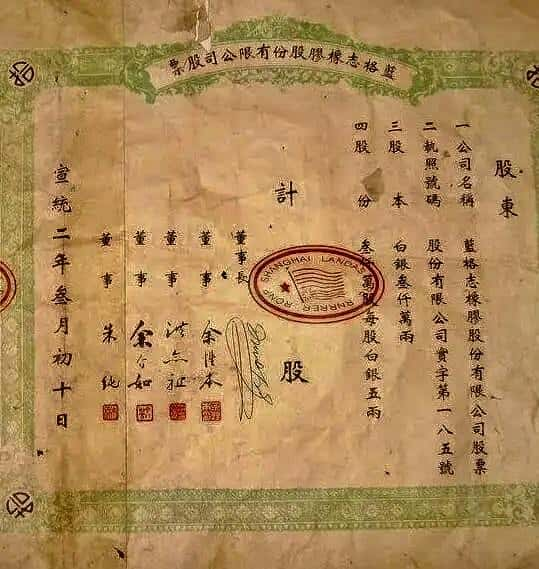 藍格志橡膠股份有限公司股票
股東
一公司名稱 藍格志橡膠股份有限公司股票
二執照號碼 股份有限公司實字第一八五號
三股本 白銀叁仟萬兩
四股份 叁仟萬股每股白銀五兩
計 股
SHANGHAI LANDAS
董事長
董事 余 本
董事 洪
董事 余 如
董事 朱純
宣統二年叁月初十日